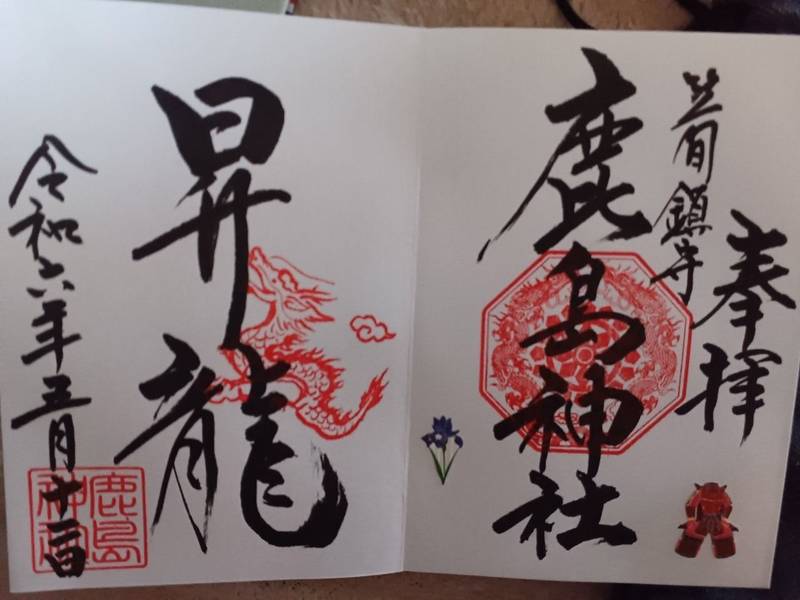 奉拝
笠間鎮守
鹿島神社
昇龍
令和六年五月十二日
鹿島神社